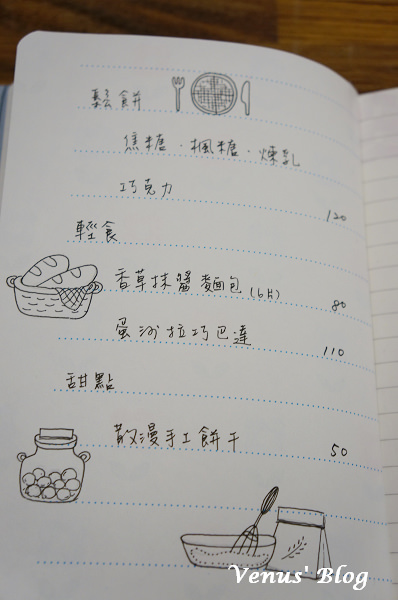 鬆餅
焦糖・楓糖・煉乳
巧克力 120
輕食
香草抹醬麵包(6片) 80
蛋沙拉巧巴達 110
甜點
散漫手工餅干 50
Venus' Blog